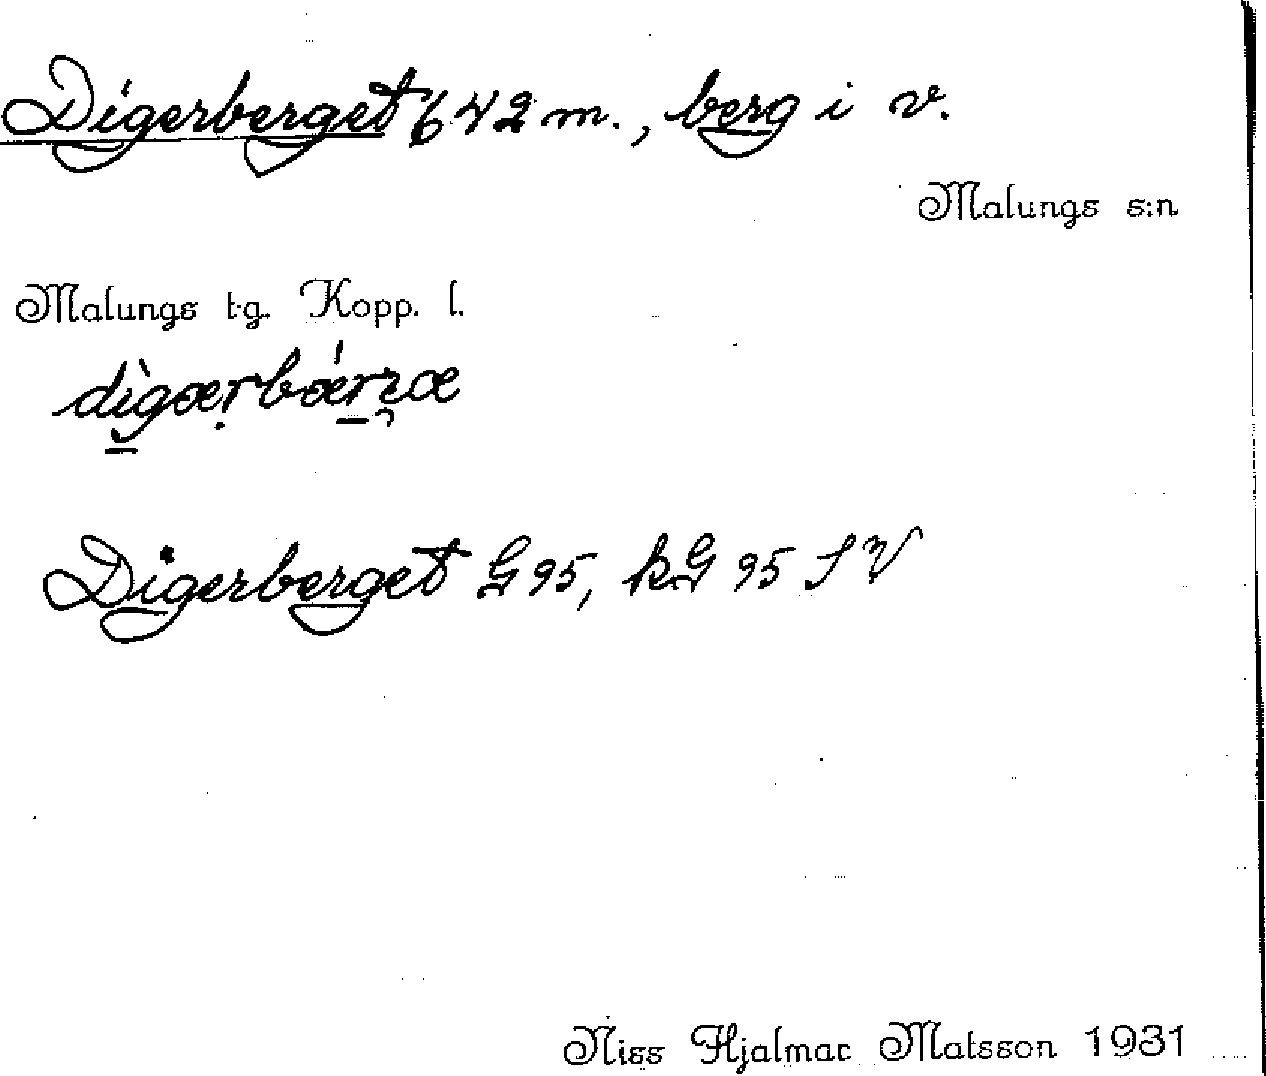 Digerberget 642 m., berg i v.
Malungs s:n
Malungs tg. Kopp. l.
dìgærbǽrʒæ
Digerberget G 95, kG 95 SV
Niss Hjalmar Matsson 1931